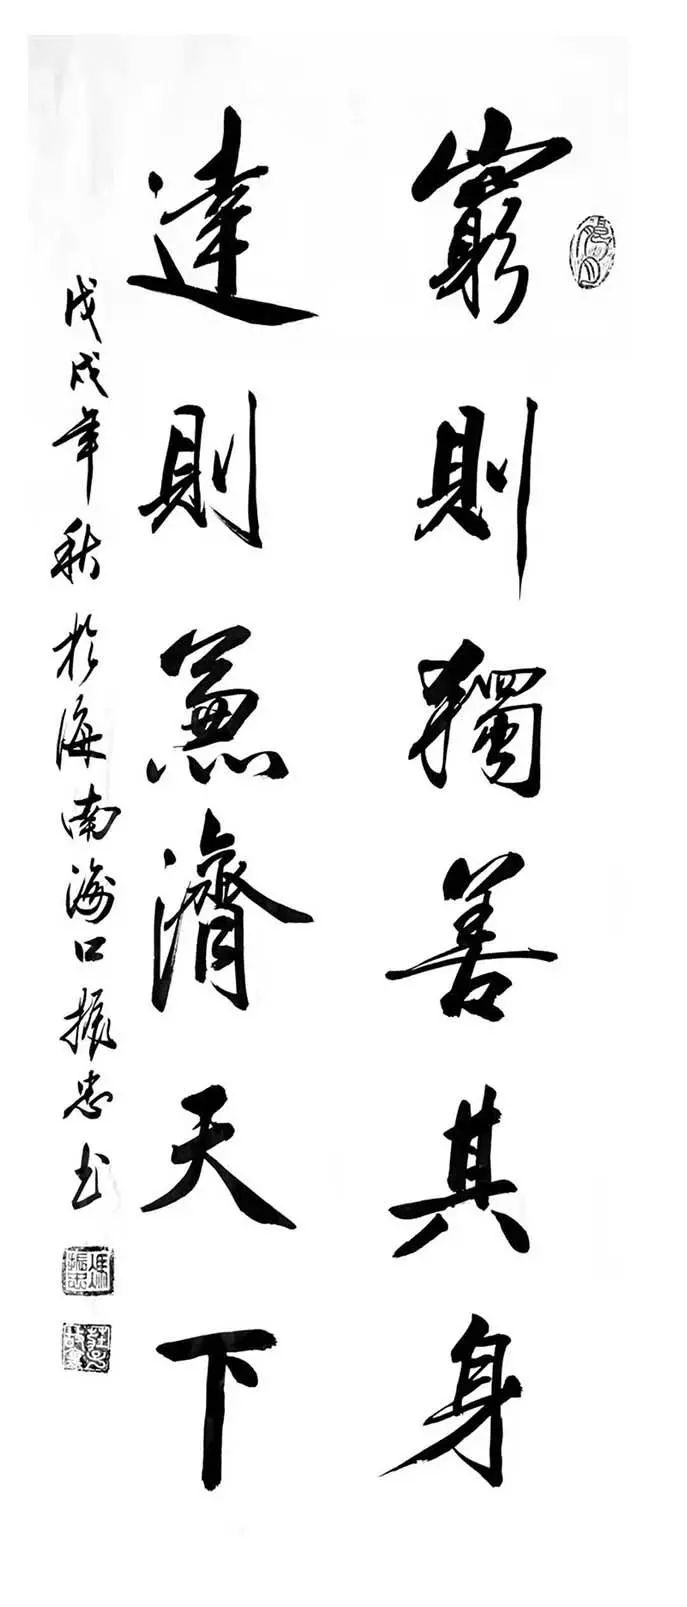 窮則獨善其身
達則兼濟天下
戊戌年秋於海南海口振忠书